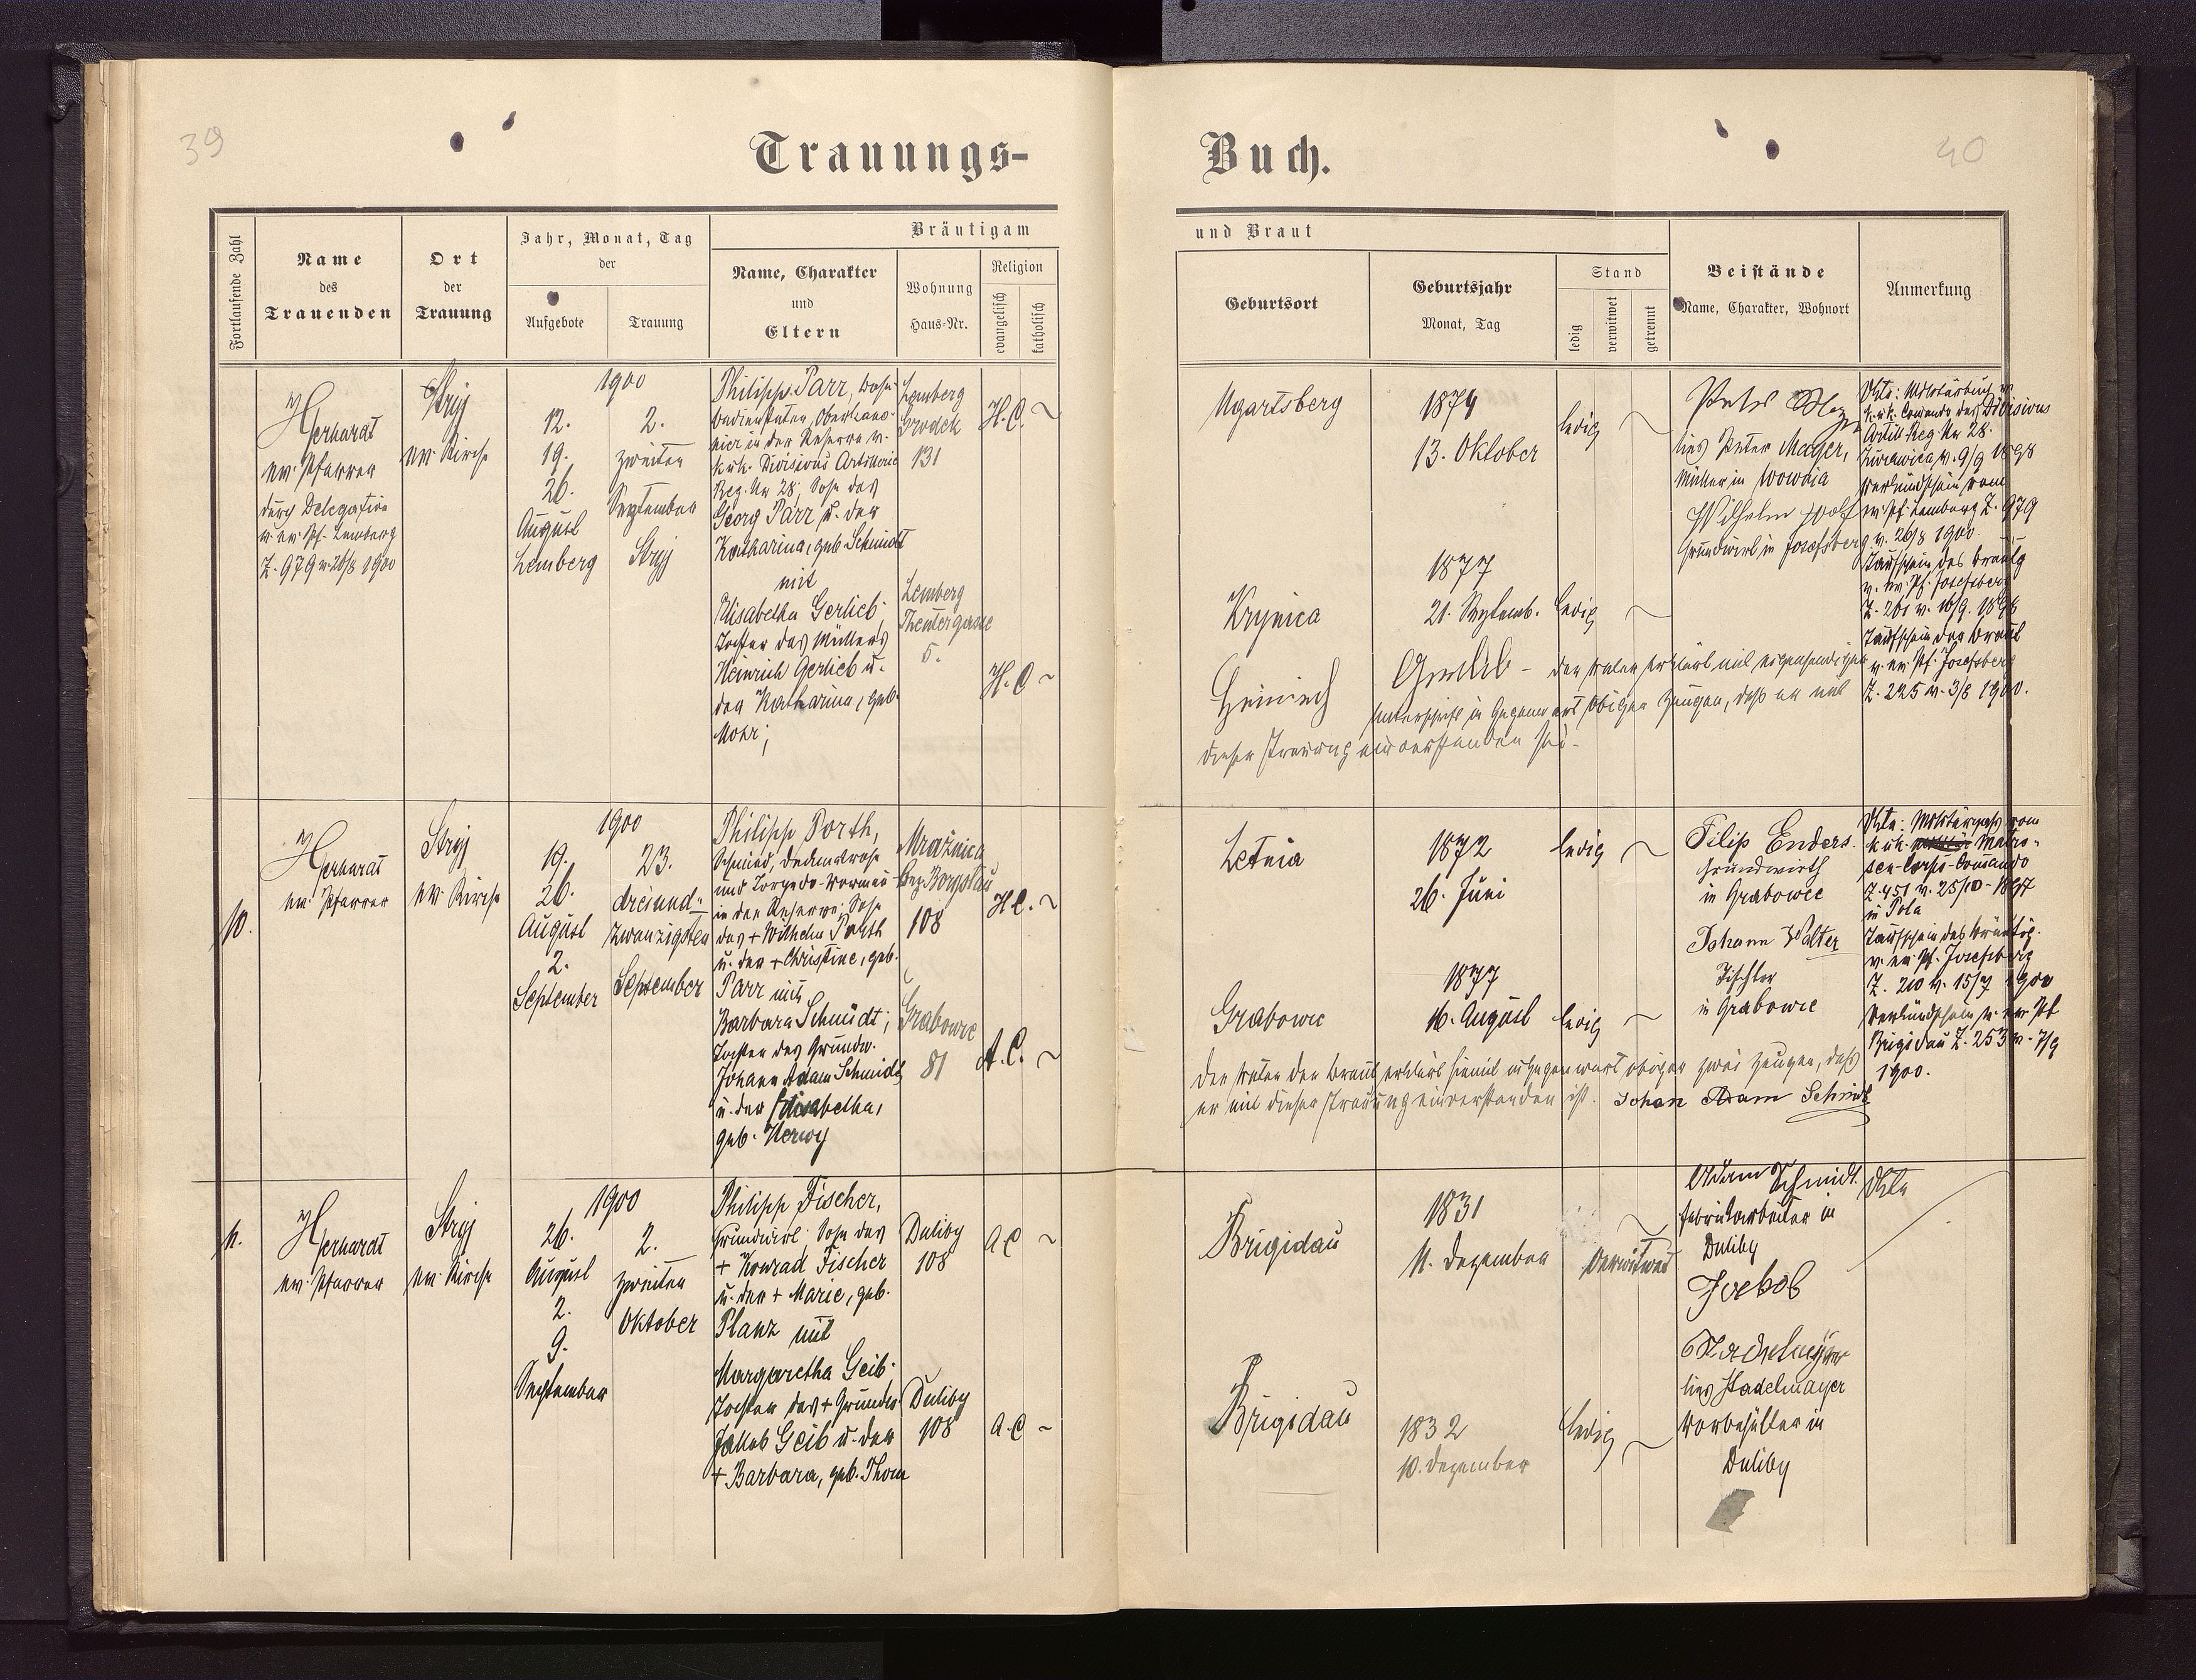 39
Trauungs-
Buch.
40
Fortlaufende Zahl
Name
des
Trauenden
Ort
der
Trauung
Jahr, Monat, Tag
der
Aufgebote
Trauung
Bräutigam
Name, Charakter
und
Eltern
Wohnung
Haus-Nr.
Religion
evangelisch
katholisch
und Braut
Geburtsort
Geburtsjahr
Monat, Tag
Stand
ledig
verwitwet
getrennt
Beistände
Name, Charakter, Wohnort
Anmerkung
ev. Pfarrer
durch Delegation
v. ev. Pf. Lemberg
Z. 979 v. 26/8 1900
Stryj
ev. Kirche
1900
12.
19.
26.
August
Lemberg
2.
zweiten
September
Stryj
Philipp Parr,
in der Reserve v.
k.u.k. Divisions Artillerie
Reg. Nr 28; Sohn des
Georg Parr u. der
Katharina, geb. Schmidt
mit
Elisabetha Gerlieb;
Tochter des Müllers
Heinrich Gerlieb u.
der Katharina, geb.
Mohr;
Lemberg
Grodek
131
H.C. ~
Lemberg
Theatergasse
5.
H.C ~
Ugartsberg
1874
13. Oktober
ledig
Krynica
1877
21. Septemb.
ledig
der Vater erklärt mit eigenhändiger
Unterschrift in Gegenwart obiger Zeugen, daß er mit
dieser Trauung einverstanden sei.
Peter
lies Peter Mayer,
Müller in
Wilhelm Wolf
Grundwirt in Josefsberg
k.u.k. Comando des Divisions
Artill. Reg. Nr 28.
Zurawica, v. 9/9 1898
Verkündschein vom
ev. Pf. Lemberg Z. 979
v. 26/8 1900.
Taufschein des Bräutig
v. ev. Pf. Josefsberg
Z. 261 v. 16/9. 1898
Taufschein der Braut
v. ev. Pf. Josefsberg
Z. 225 v. 3/8 1900.
10.
ev. Pfarrer
Stryj
ev. Kirche
1900
19.
26.
August
2.
September
23.
dreiund-
zwanzigsten
September
Philipp Porth,
Schmied,
in der Reserve; Sohn
des + Wilhelm Porth
u. der + Christine, geb.
Parr mit
Barbara Schmidt;
Tochter des Grundw.
Johann Adam Schmidt
u. der Elisabetha,
geb.
Mraźnica
bez. Boryslau
108
H.C. ~
Grabowce
81
A.C. ~
Letnia
1872
26. Juni
ledig
Grabowce
1877
16. August
ledig
Der Vater der Braut erklärt hiemit in Gegenwart obiger zwei Zeugen, daß
er mit dieser Trauung einverstanden ist. Johan Adam Schmidt
Filip Enders
Grundwirth
in Grabowce
Johann Walter
Tischler
in Grabowce
Militärpass vom
k.u.k. Matro-
sen-Corps-Comando
Z. 451 v. 25/10-1897
in Pola
Taufschein des Bräutig.
v. ev. Pf. Josefsberg
Z. 210 v. 15/7 1900
Verkündschein v. ev. Pf
Brigidau Z. 253 v. 7/9
1900.
11.
ev. Pfarrer
Stryj
ev. Kirche
1900
26.
August
2.
9.
September
2.
zweiten
Oktober
Philipp Fischer,
Grundwirt; Sohn des
+ Konrad Fischer
u. der + Marie, geb.
Planz mit
Margaretha Geib;
Tochter des + Grundw.
Jakob Geib u. der
+ Barbara, geb. Thom
Duliby
108
A.C ~
Duliby
108
A.C ~
Brigidau
1831
11. Dezember
verwitwet
Brigidau
1832
10. Dezember
ledig
Adam Schmidt
Fabriksarbeiter in
Duliby
Jakob
lies Stadelmayer
Vorbeter in
Duliby